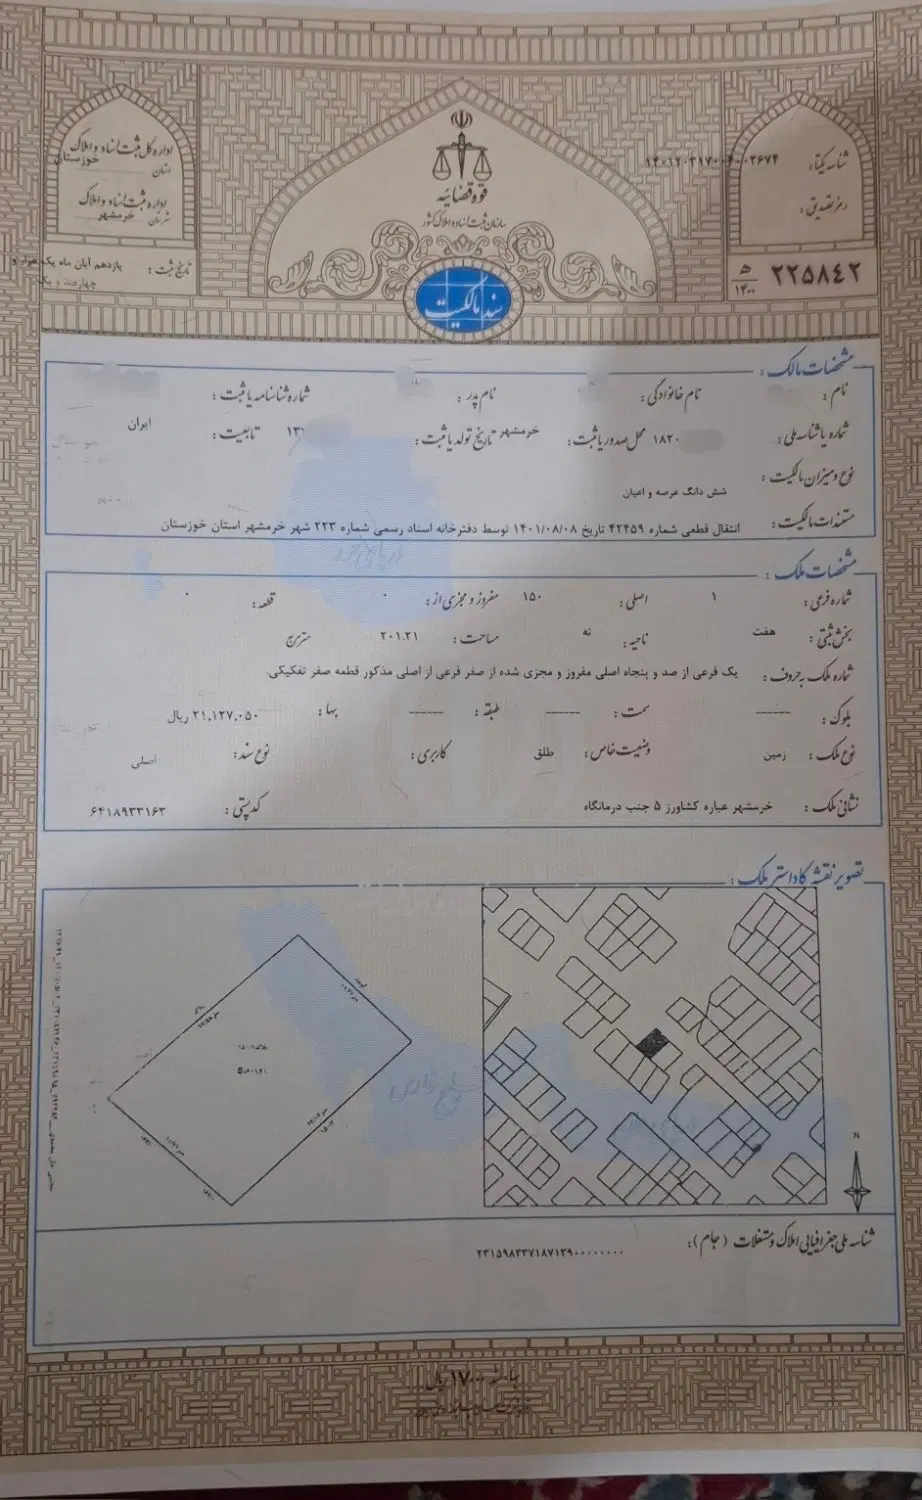 اداره کل ثبت اسناد و املاک
استان خوزستان
اداره ثبت اسناد و املاک
شهرستان خرمشهر
تاریخ ثبت: یازدهم آبان ماه یک هزار و
چهارصد و یک
قوه قضاییه
سازمان ثبت اسناد و املاک کشور
سند مالکیت
شناسه یکتا:
رمز تصدیق:
۲۲۵۸۴۲ ه‍/۱۴۰۰
مشخصات مالک:
نام: نام خانوادگی: نام پدر: شماره شناسنامه یا ثبت:
شماره یا شناسه ملی: ۱۸۲۰ محل صدور یا ثبت: خرمشهر تاریخ تولد یا ثبت: ۱۳ تابعیت: ایران
نوع و میزان مالکیت:
شش دانگ عرصه و اعیان
مستندات مالکیت: انتقال قطعی شماره ۴۲۴۵۹ تاریخ ۱۴۰۱/۰۸/۰۸ توسط دفترخانه اسناد رسمی شماره ۲۲۳ شهر خرمشهر استان خوزستان
مشخصات ملک:
شماره فرعی: ۱ اصلی: ۱۵۰ مفروز و مجزی از: ۰ قطعه: ۰
بخش ثبتی: هفت ناحیه: نه مساحت: ۲۰۱.۲۱ مترمربع
شماره ملک به حروف: یک فرعی از صد و پنجاه اصلی مفروز و مجزی شده از صفر فرعی از اصلی مذکور قطعه صفر تفکیکی.
بلوک: ------ سمت: ------ طبقه: ------ بها: ۲۱,۱۲۷,۰۵۰ ریال
نوع ملک: زمین وضعیت خاص: طلق کاربری: نوع سند: اصلی
نشانی ملک: خرمشهر عباره کشاورز ۵ جنب درمانگاه کدپستی: ۶۴۱۸۹۳۳۱۶۳
تصویر نقشه کاداستر ملک:
N
شناسه ملی جغرافیایی املاک و مستغلات (جام): ۲۳۱۵۹۸۳۳۷۱۸۷۱۳۹۰۰۰۰۰۰۰۰